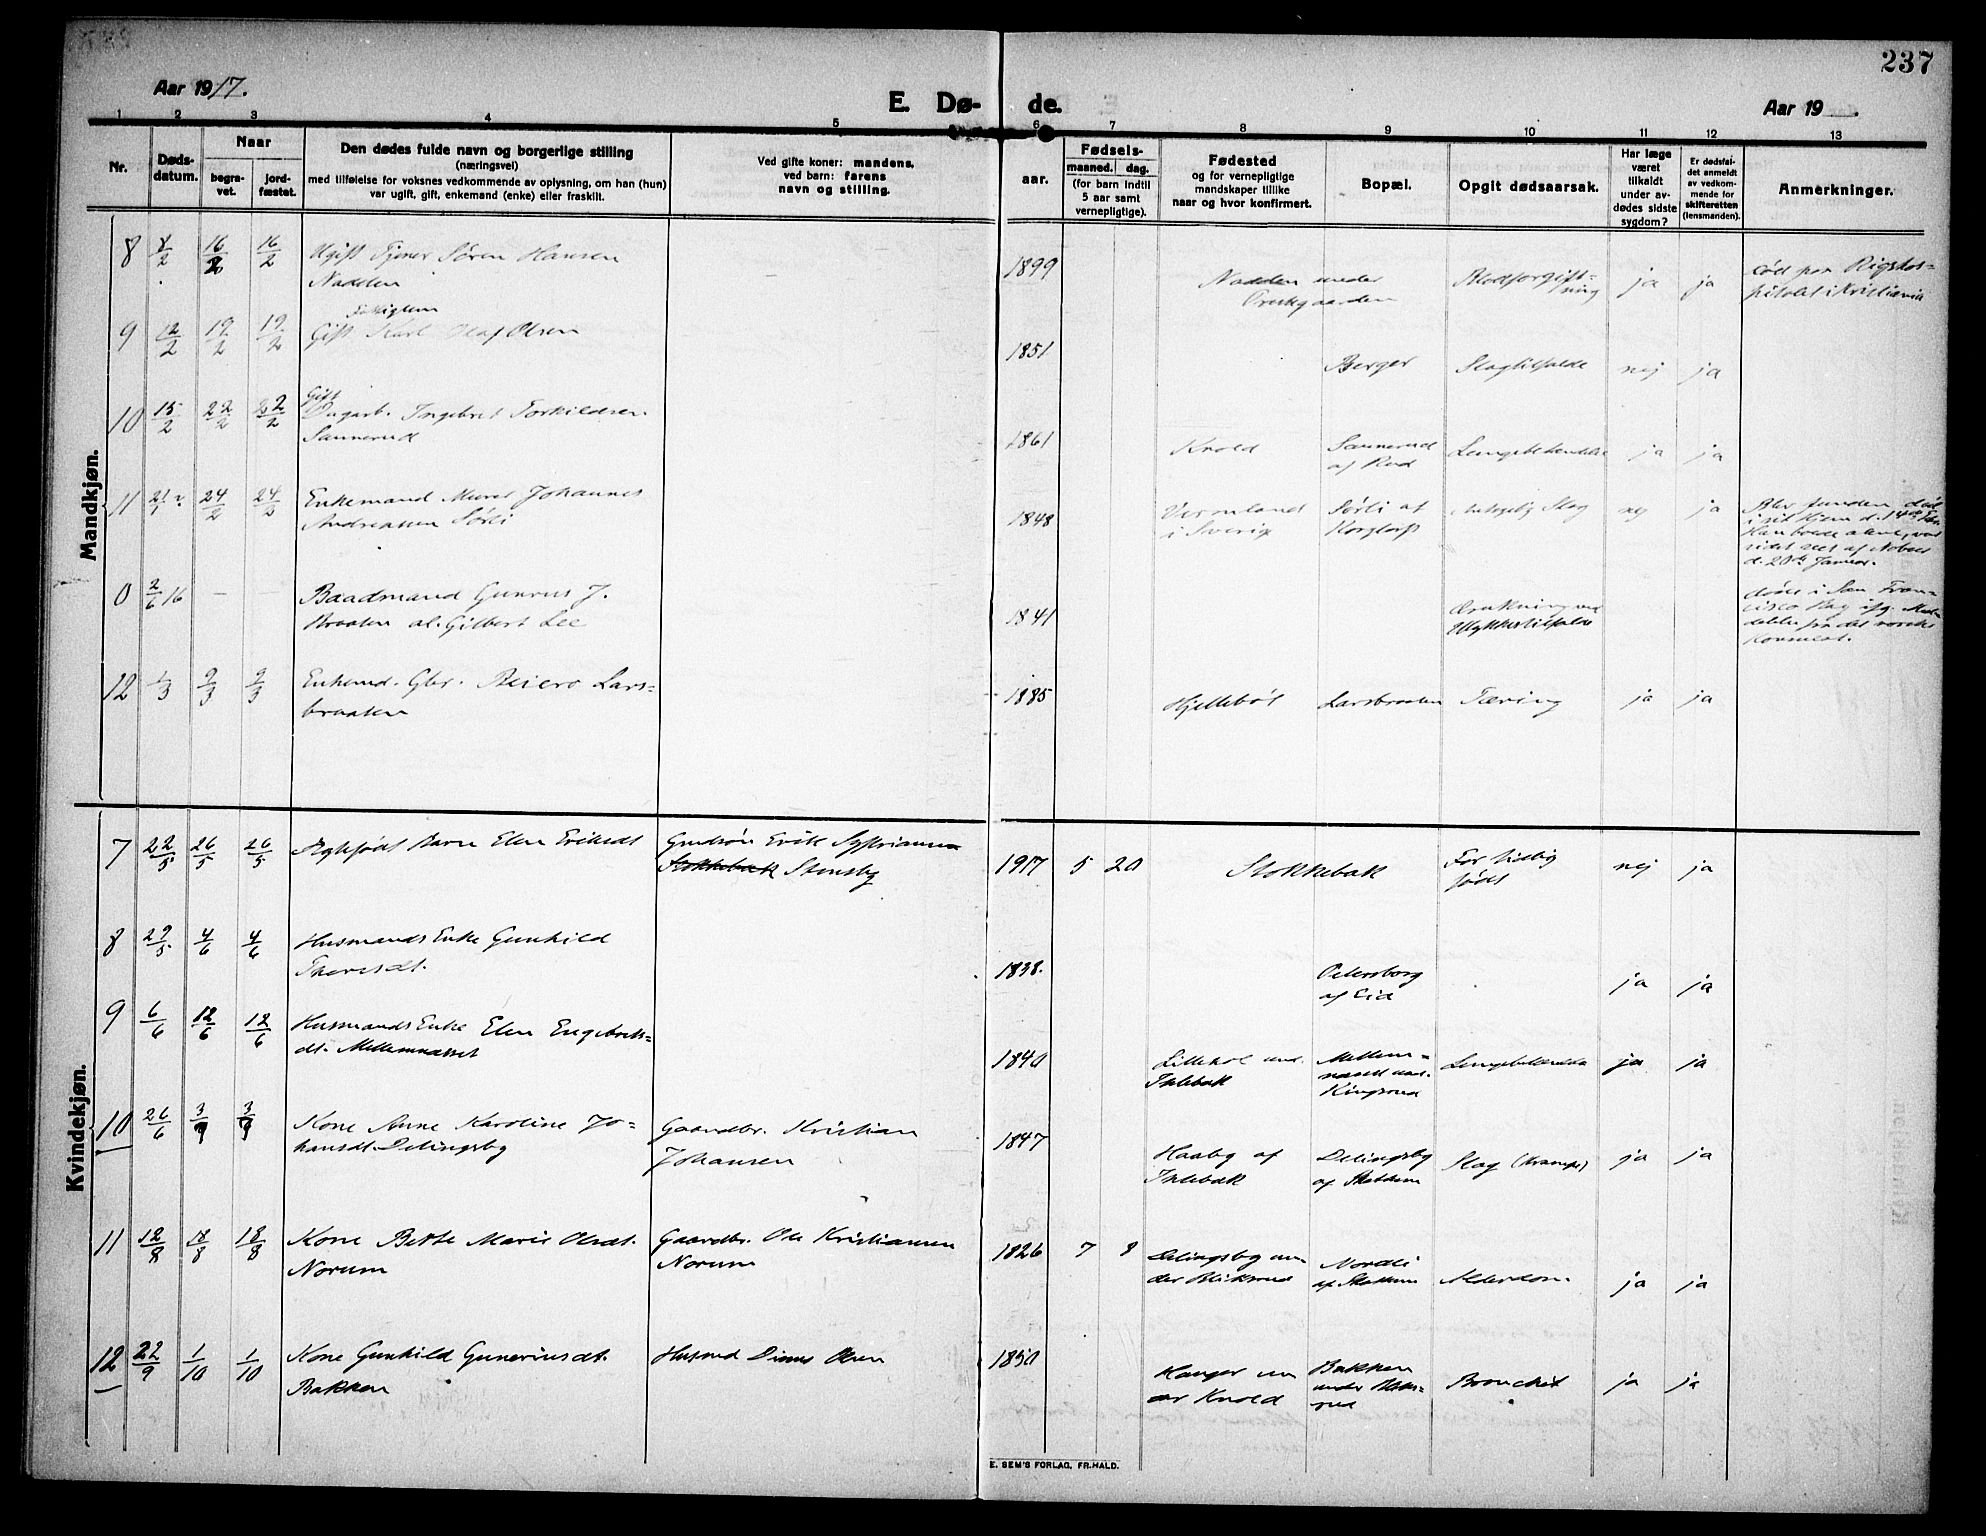 237
Aar 1917.
E. Dø-
de.
Aar 19
1 2 3 4 5 6 7 8 9 10 11 12 13
Nr.
Døds-
datum.
Naar
begra-
vet.
jord-
fæstet.
Den dødes fulde navn og borgerlige stilling
(næringsvei)
med tilføielse for voksnes vedkommende av oplysning, om han (hun)
var ugift, gift, enkemand (enke) eller fraskilt.
Ved gifte koner: mandens,
ved barn: farens
navn og stilling.
aar.
Fødsels-
maaned. dag.
(for barn indtil
5 aar samt
vernepligtige).
Fødested
og for vernepligtige
mandskaper tillike
naar og hvor konfirmert.
Bopæl.
Opgit dødsaarsak.
Har læge
været
tilkaldt
under av-
dødes sidste
sygdom?
Er dødsfal-
det anmeldt
av vedkom-
mende for
skifteretten
(lensmanden).
Anmerkninger.
Mandkjøn.
8 8/2 16/2 16/2 Ugift Tjener Søren Hansen
Nadden
1899 Nadden under
Blodforgift-
ning
ja ja
død paa Rigshos-
pitalet i Kristiania
9 12/2 19/2 19/2 Gift Karl Olaf Olsen
1851 Berger Slagtilfælde nej ja
10 15/2 22/2 22/2 Gift
Ingebret Torkildsen
Saunerud
1861 Knold Saunerud
af Rud
Lungebetændelse ja ja
11 21/1 24/2 24/2 Enkemand Murer Johannes
Andreassen Sørli
1848 Vermland
i Sverige
Sørli af
Korstorp
Antagelig Slag nej ja
Blev funden død
i sit Hjem d. 14de Feb.
Han boede alene, var
sidst seet af Naboer
d. 20de Januar.
0 2/6 16 – – Baadmand Gunerius J.
Braaten al. Gilbert Lee
1841
Drukning ved
Ulykkestilfælde
døde i San Fran-
cisco Bay ifg. Med-
delelse fra det norske
Konsulat.
12 1/3 9/3 9/3 Enkemd. Gbr. Beiero Lars-
braaten
1885 Hjellebøl Larsbraaten Tæring ja ja
Kvindekjøn.
7 22/5 26/5 26/5 Ægtefødt Barn Elen Eriksdt Grudsön Erik Syrtriansen
Stokkebæk Stensby
1917 5 20 Stokkebæk For tidlig
født
nej ja
8 29/5 4/6 4/6 Husmands Enke Gunhild
Thoresdt.
1838. Petersborg
af Eid
ja ja
9 6/6 12/6 12/6 Husmands Enke Elen Engebrets-
dt. Mellemnæsset
1840 Lillehol und.
Ihlebæk
Mellem-
næsset und.
Kingsrud
Lungebetændelse ja ja
10 26/6 3/7 3/7 Kone Anne Karoline Jo-
hansdt. Delingsby
Gaardbr. Kristian
Johansen
1847 Haaby af
Ihlebæk
Delingsby
af Skotsum
Slag (Krampe) ja ja
11 12/8 18/8 18/8 Kone Berte Marie Olsdt.
Norum
Gaardbr. Ole Kristiansen
Norum
1826 7 8 Delingsby un-
der Bliksrud
Nordli
af Skotsum
Alderdom. ja ja
12 22/9 1/10 1/10 Kone Gunhild Gunneriusdt.
Bakken
Husmd Dines Olsen
1850 Hanger un-
der Knold
Bakken
under Bliks-
rud
Bronchit ja ja
E. SEM'S FORLAG, FR.HALD.